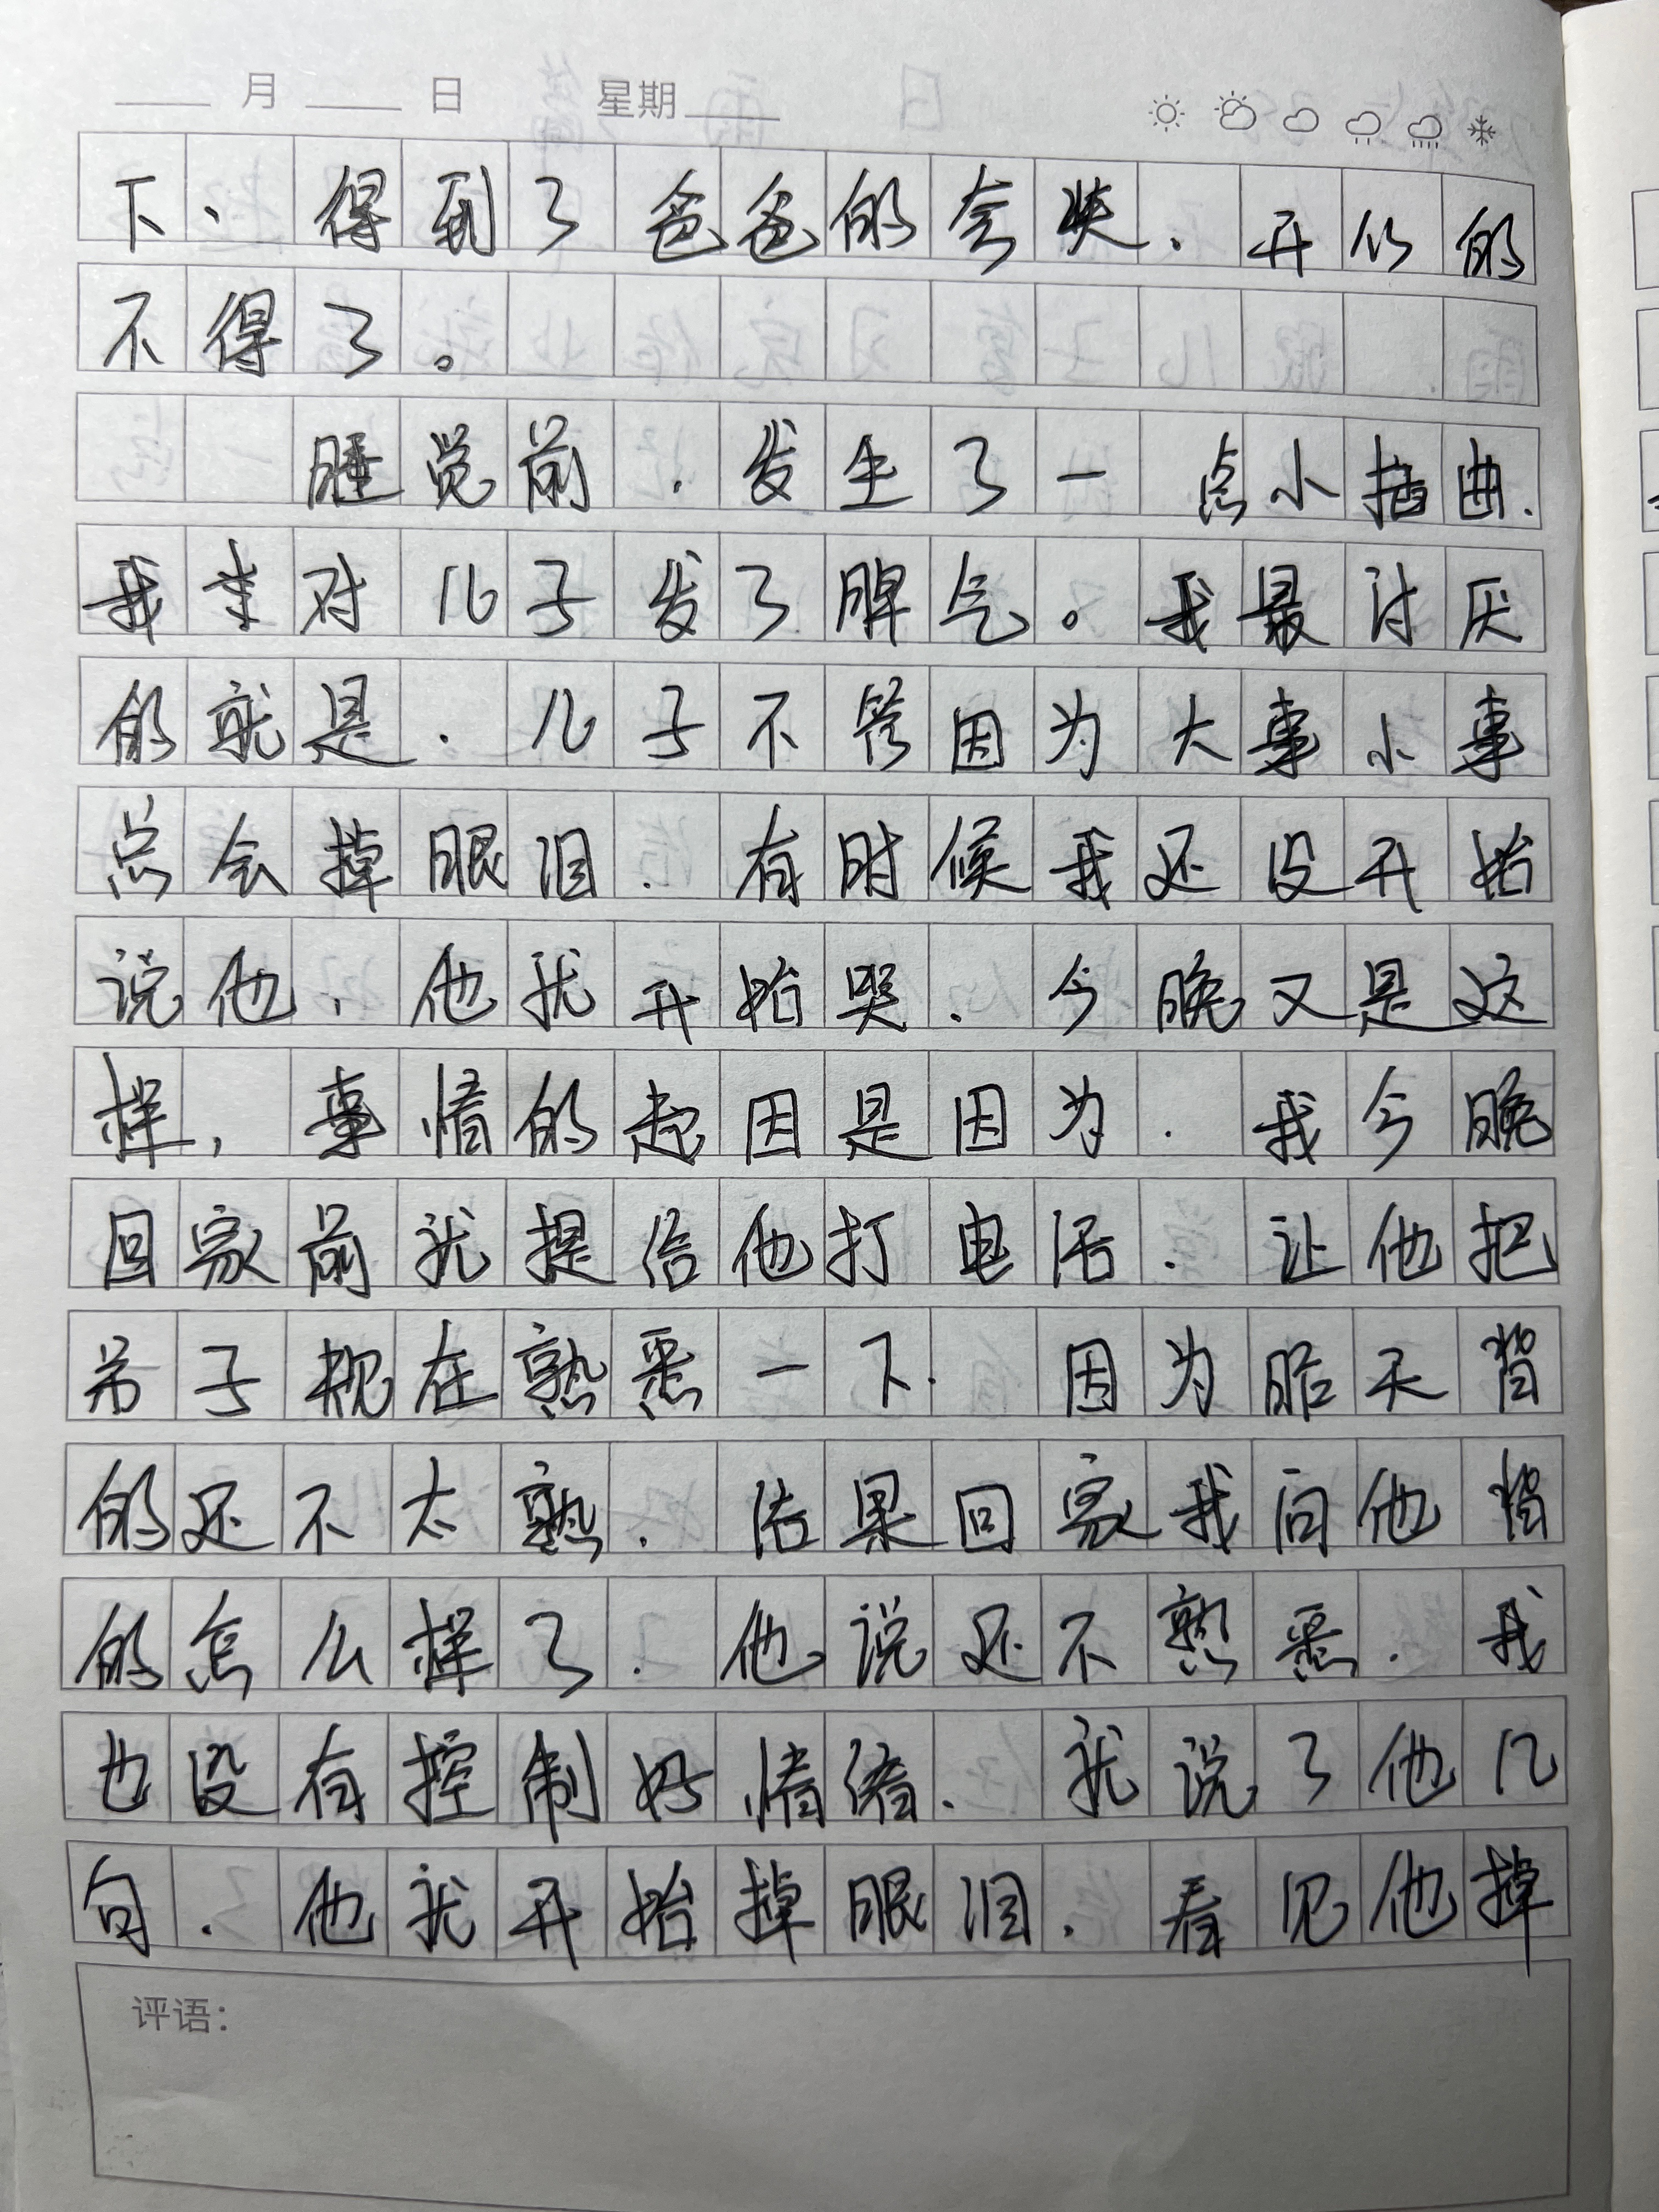 月 日 星期
下、得到了爸爸的夸奖.开心的
不得了。
睡觉前.发生了一点小插曲.
我幸对儿子发了脾气。我最讨厌
的就是.儿子不管因为大事小事
总会掉眼泪.有时候我还没开始
说他、他就开始哭.今晚又是这
样,事情的起因是因为.我今晚
回家前就提给他打电话.让他把
弟子规在熟悉一下.因为昨天背
的还不太熟.结果回家我问他背
的怎么样了.他说还不熟悉.我
也没有控制好情绪.就说了他几
句.他就开始掉眼泪.看见他掉
评语: